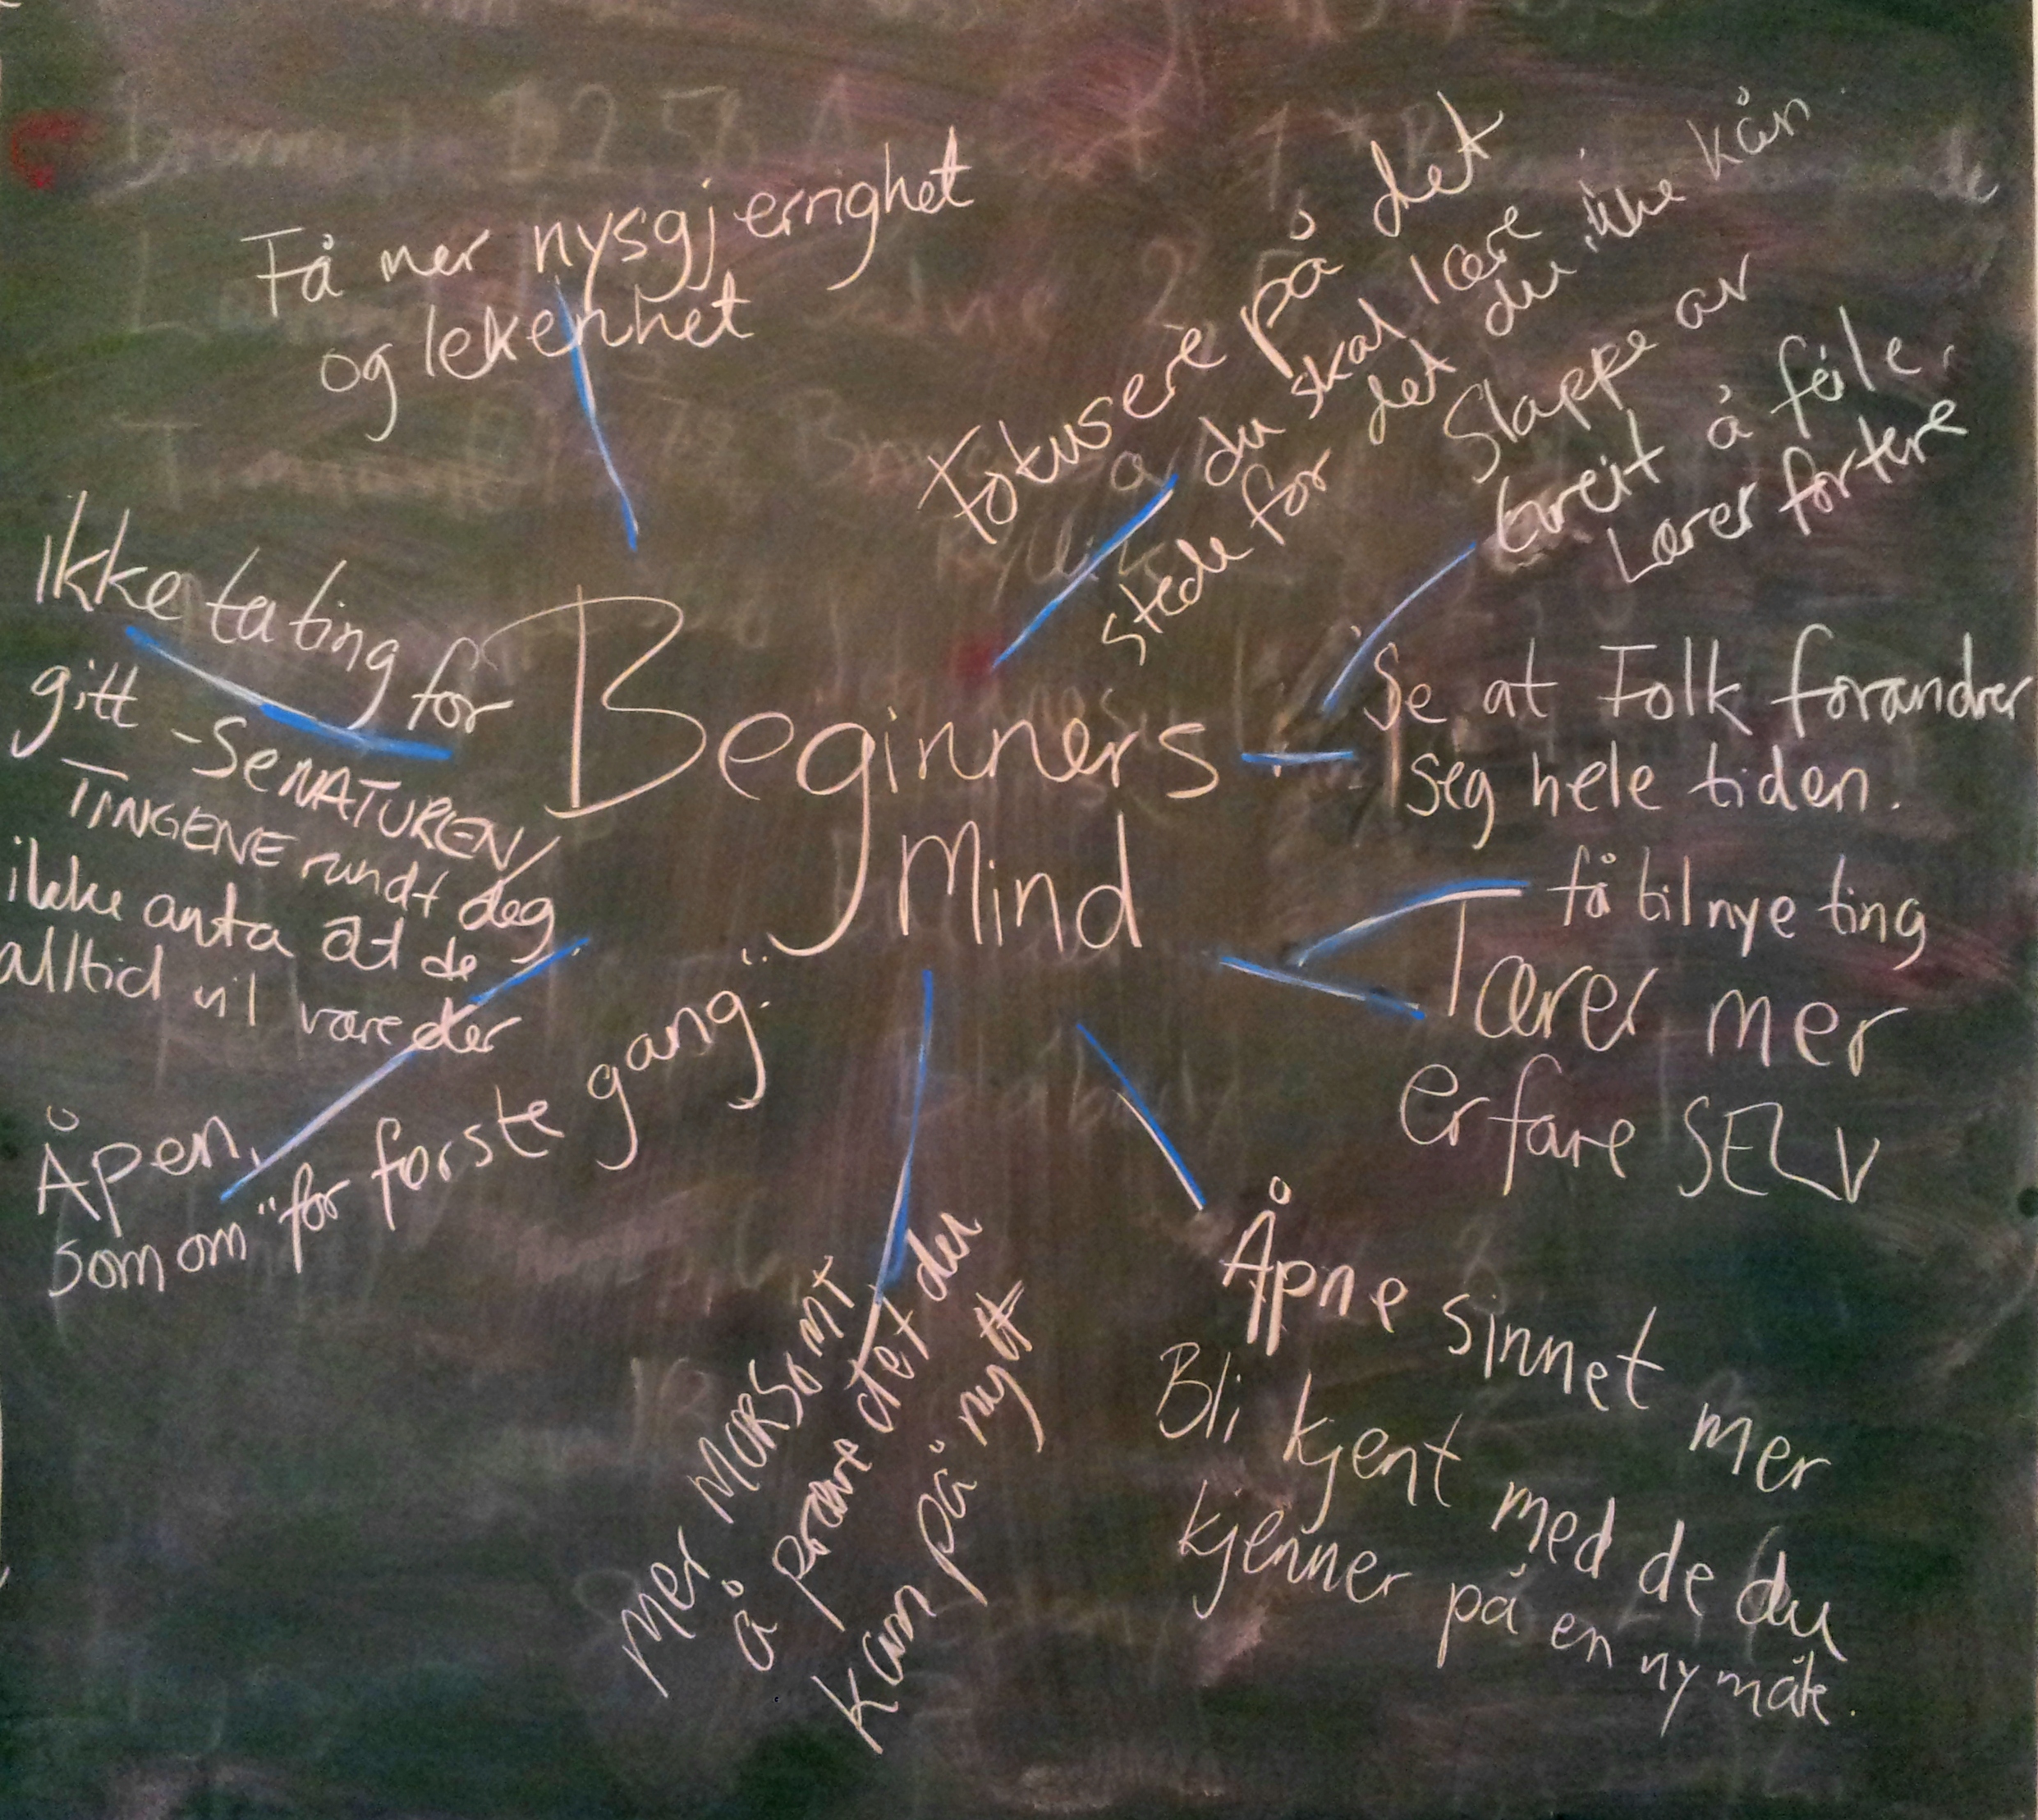 Få mer nysgjerrighet
og lekenhet
Fokusere på det
du skal lære
stede for det du ikke kan
Slappe av
Greit å feile.
Lærer fortere
Se at Folk forandrer
seg hele tiden.
få til nye ting
lærer mer
erfare SELV
Åpne sinnet mer
Bli kjent med de du
kjenner på en ny måte.
mer MORSOMT
å prøve det du
kan på nytt
Åpen,
som om "for første gang"
Ikke ta ting for
gitt - Se NATUREN/
TINGENE rundt deg
ikke anta at de
alltid vil være der
Beginners
Mind